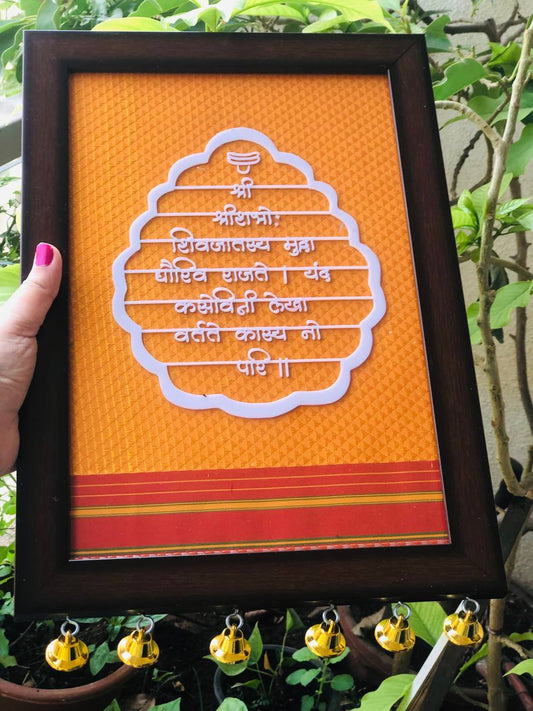 श्री
श्रीशम्भोः
शिवजातस्य मुद्रा
धौरिव राजते । यंद
कसेविनी लेखा
वर्तते कास्य नो
परि ॥